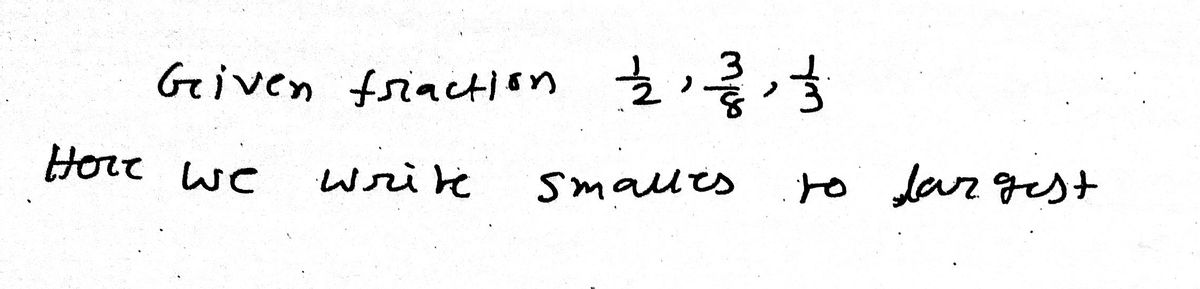 Given fraction 1/2, 3/8, 1/3
Here we write smalles to largest